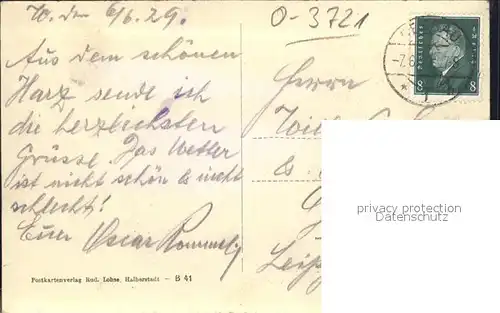 d. 6/6.29.
O-3721
Aus dem schönen
Harz sende ich
die herzlichsten
Grüsse. Das Wetter
ist nicht schön es nicht
schlecht!
Euer Oscar
Herrn
Leip
8 8
privacy protection
Datenschutz
Postkartenverlag Rud. Lohse, Halberstadt — B 41